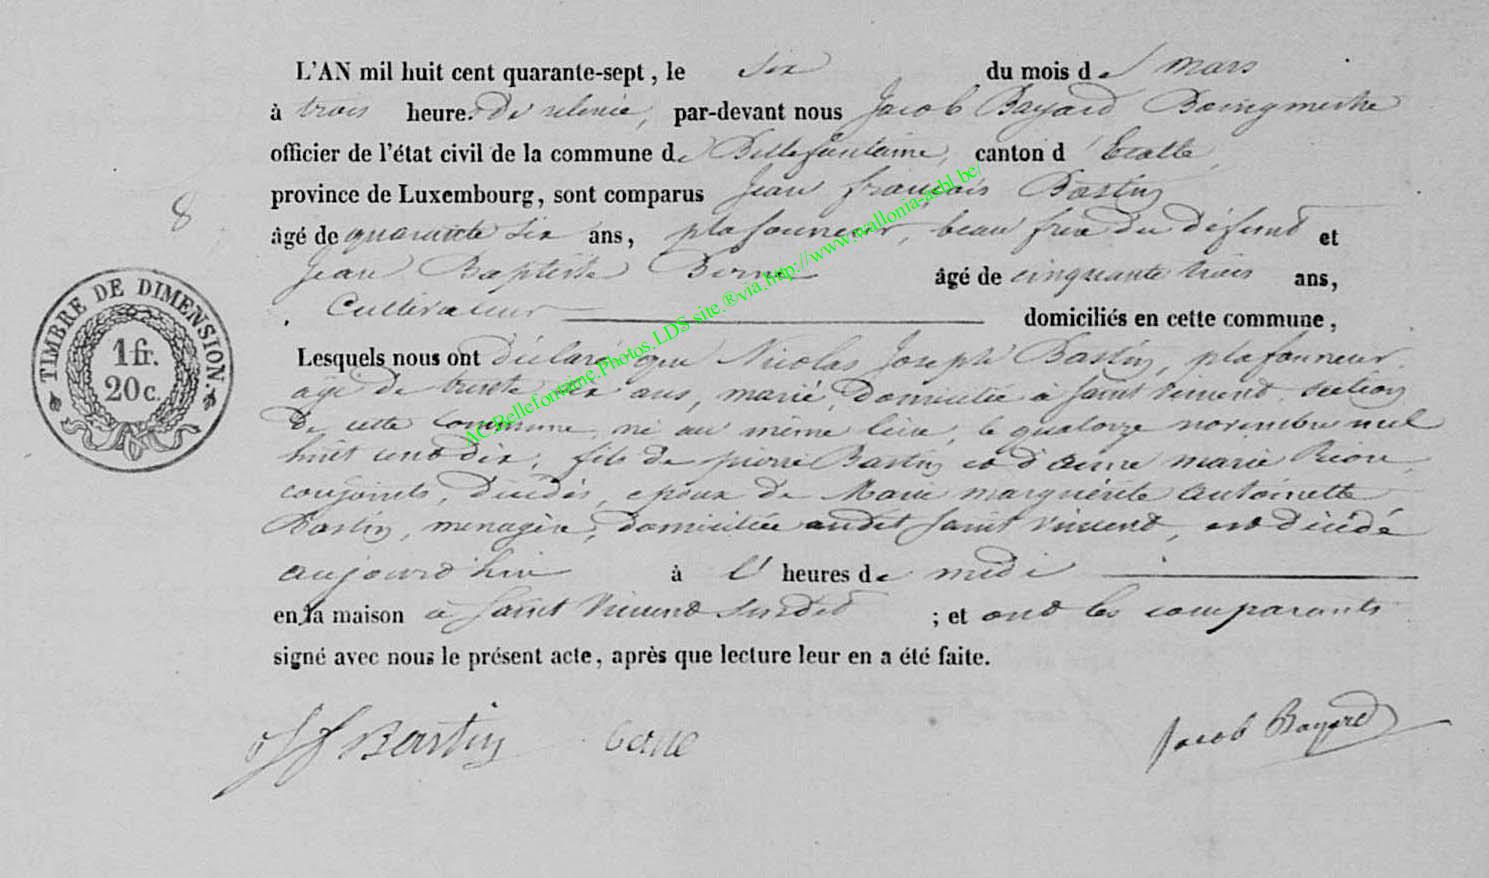 L'AN mil huit cent quarante-sept, le six du mois de mars
à trois heures de relevée, par-devant nous Jacob Bayard Bourgmestre
officier de l'état civil de la commune de Bellefontaine, canton d'Etalle,
province de Luxembourg, sont comparus Jean françois Bastin
8
âgé de quarante six ans, plafonneur, beau frere du défunt et
Jean Baptiste âgé de cinquante trois ans,
Cultivateur domiciliés en cette commune,
Lesquels nous ont déclaré que Nicolas Joseph Bastin, plafonneur
agé de trente six ans, marié, domicilié à Saint Vincent section
de cette commune, né au même lieu, le quatorze novembre mil
huit cent dix, fils de pierre Bastin et d'anne marie
conjoints, décédés, epoux de Marie marguérite antoinette
Bastin, menagère, domiciliée audit Saint Vincent, est décédé
aujourd'hui à l' heures de midi
en sa maison à Saint Vincent susdit ; et ont les comparants
signé avec nous le présent acte, après que lecture leur en a été faite.
TIMBRE DE DIMENSION.
1 fr.
20 c.
JF Bastin Jacob Bayard
AC.Bellefontaine.Photos.LDS site.®via.http://www.wallonia-asbl.be/